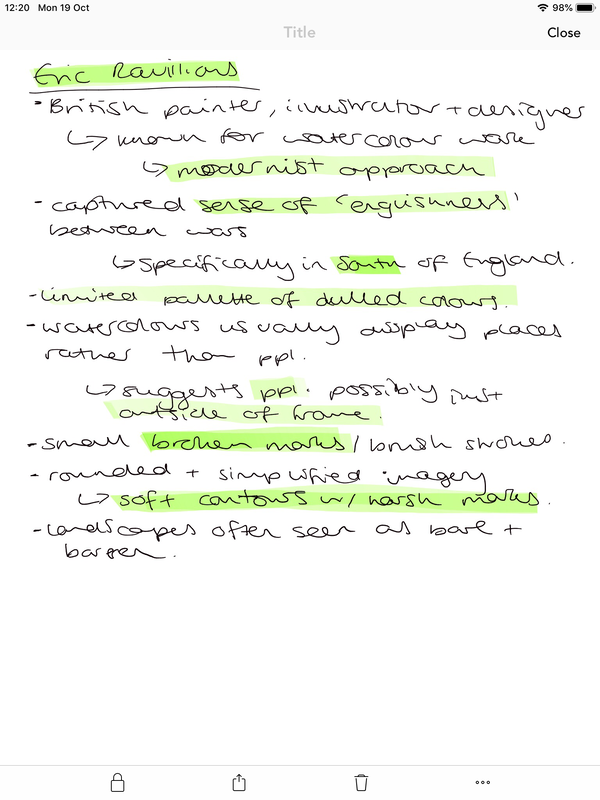 12:20 Mon 19 Oct 98%
Title Close
Eric Ravilious
- British painter, illustrator + designer
↳ known for watercolour work
↳ modernist approach
- captured sense of 'englishness'
between wars
↳ specifically in South of England.
- limited pallette of dulled colours.
- watercolours usually display places
rather than ppl.
↳ suggests ppl. possibly just
outside of frame.
- small broken marks / brush strokes.
- rounded + simplified imagery
↳ soft contours w/ harsh marks.
- landscapes often seen as bare +
barren.